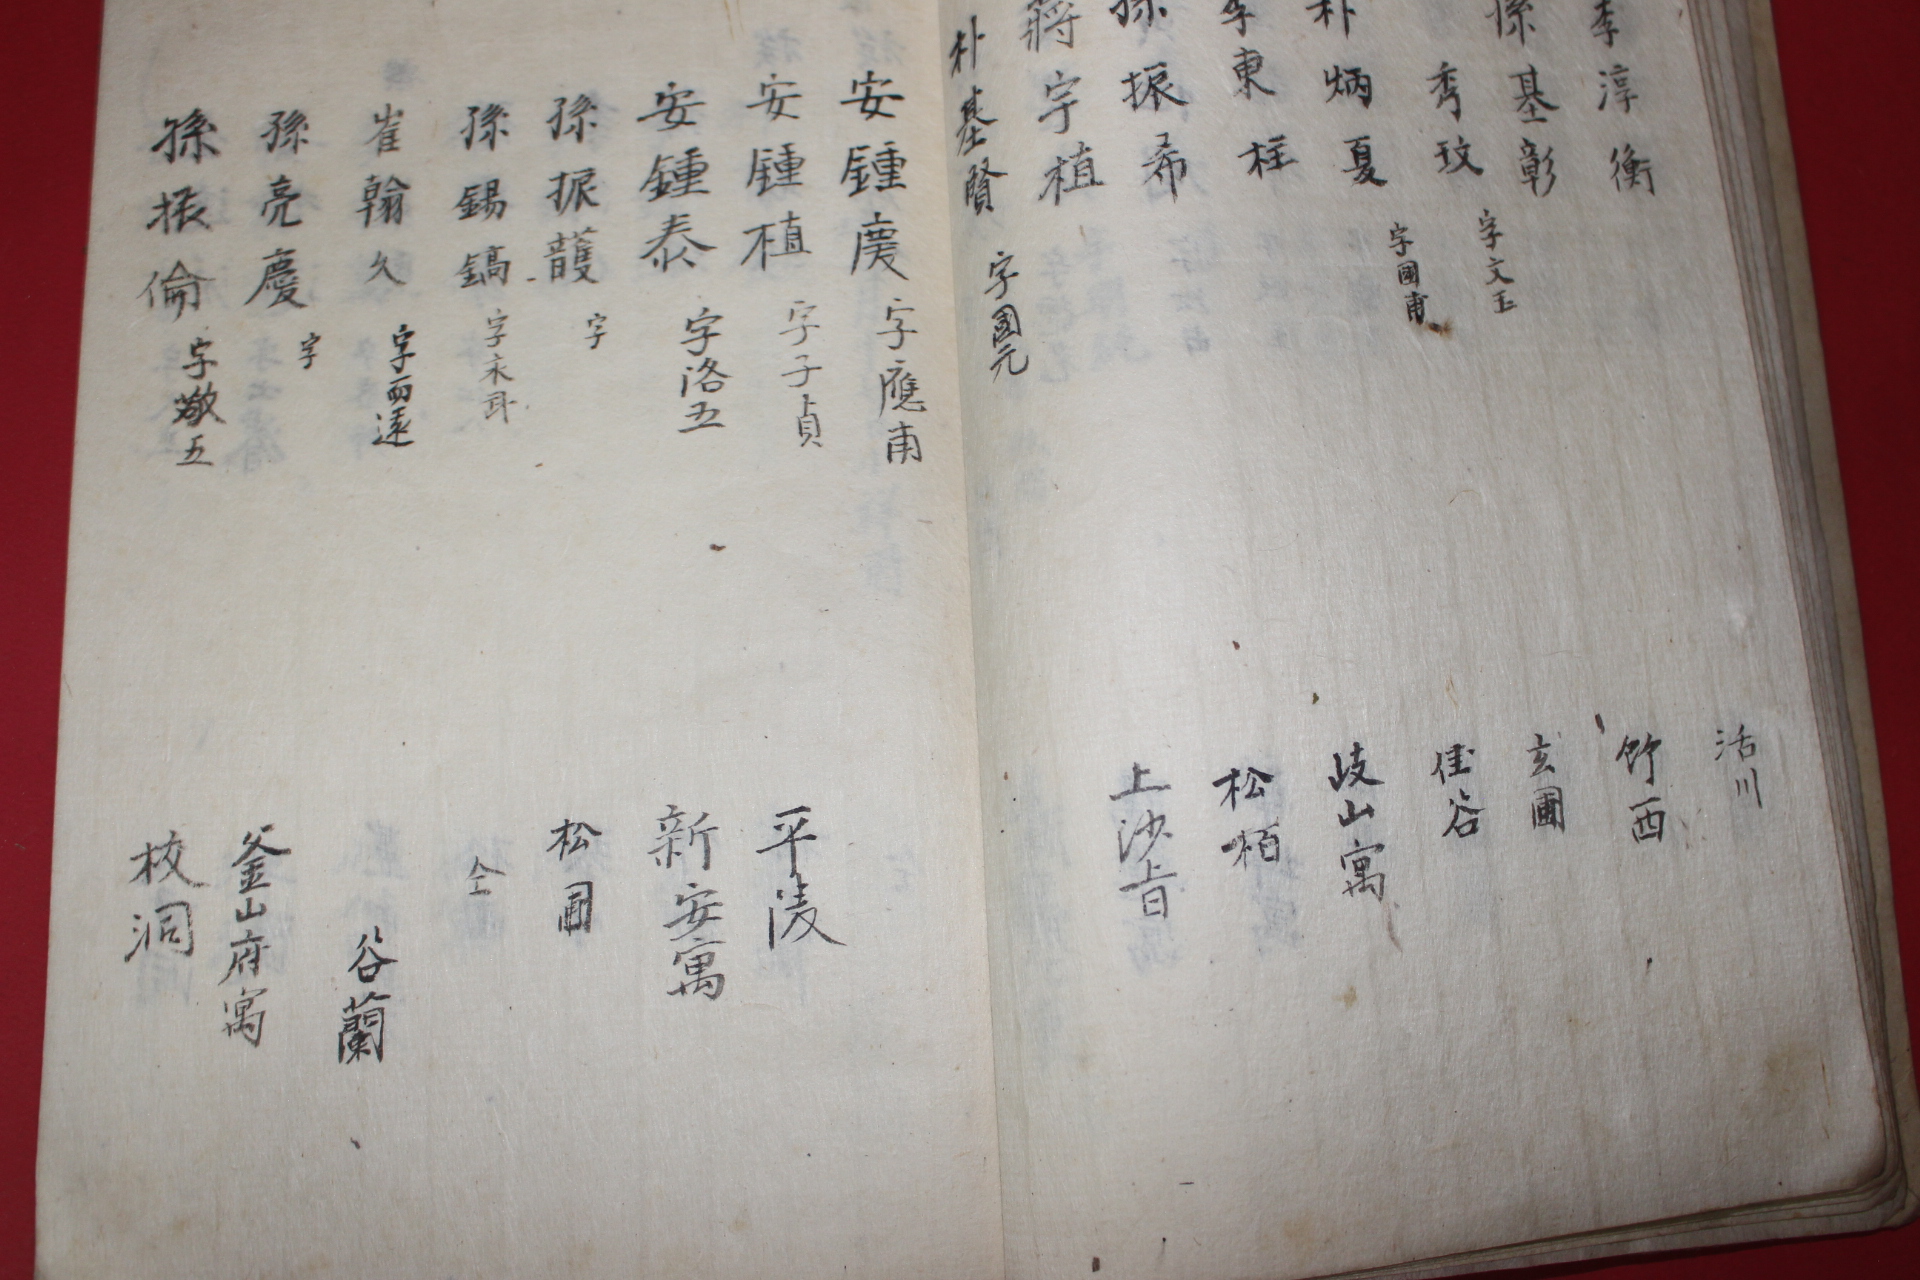 李淳衡 活川
孫基彰 竹西
秀玟 字文玉 玄圃
朴炳夏 字國甫 佳谷
李東柱 岐山寓
孫振希 松栢
蔣宇植 上沙旨
朴基賢 字國元
安鍾庹 字應甫
安鍾植 字子貞 平陵
安鍾泰 字洛五 新安寓
孫振頀 字 松圃
孫錫鎬 字永耳 仝
崔翰久 字而遠 谷蘭
孫亮慶 字 釜山府寓
孫振倫 字敬五 校洞